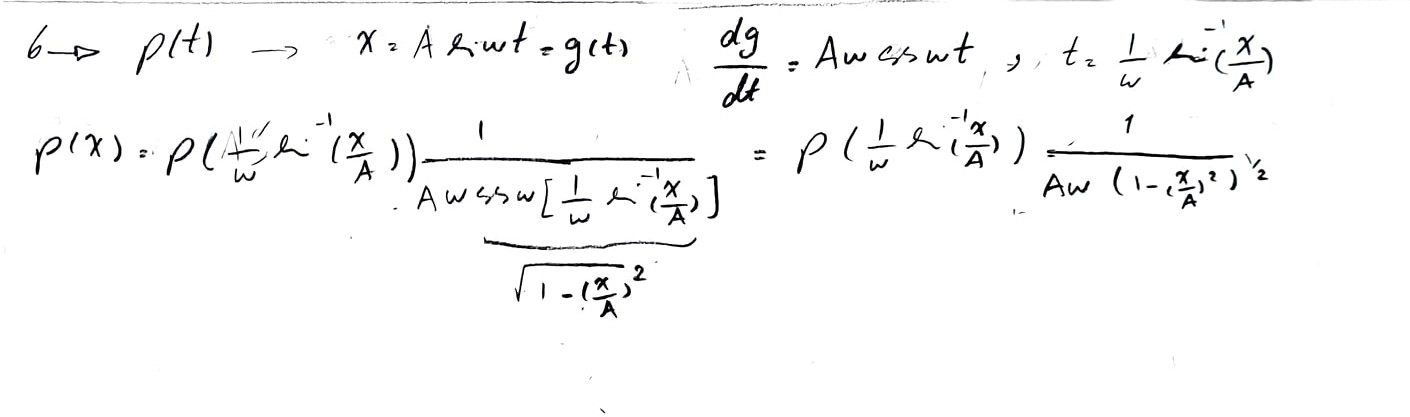 6→ p(t) → x = A sin wt = g(t) dg/dt = Aw cos wt , t = 1/w sin⁻¹(x/A)
p(x) = p(1/w sin⁻¹(x/A)) 1/(Aw cos w[1/w sin⁻¹(x/A)]) = p(1/w sin⁻¹(x/A)) 1/(Aw (1-(x/A)²)^½)
√(1-(x/A)²)